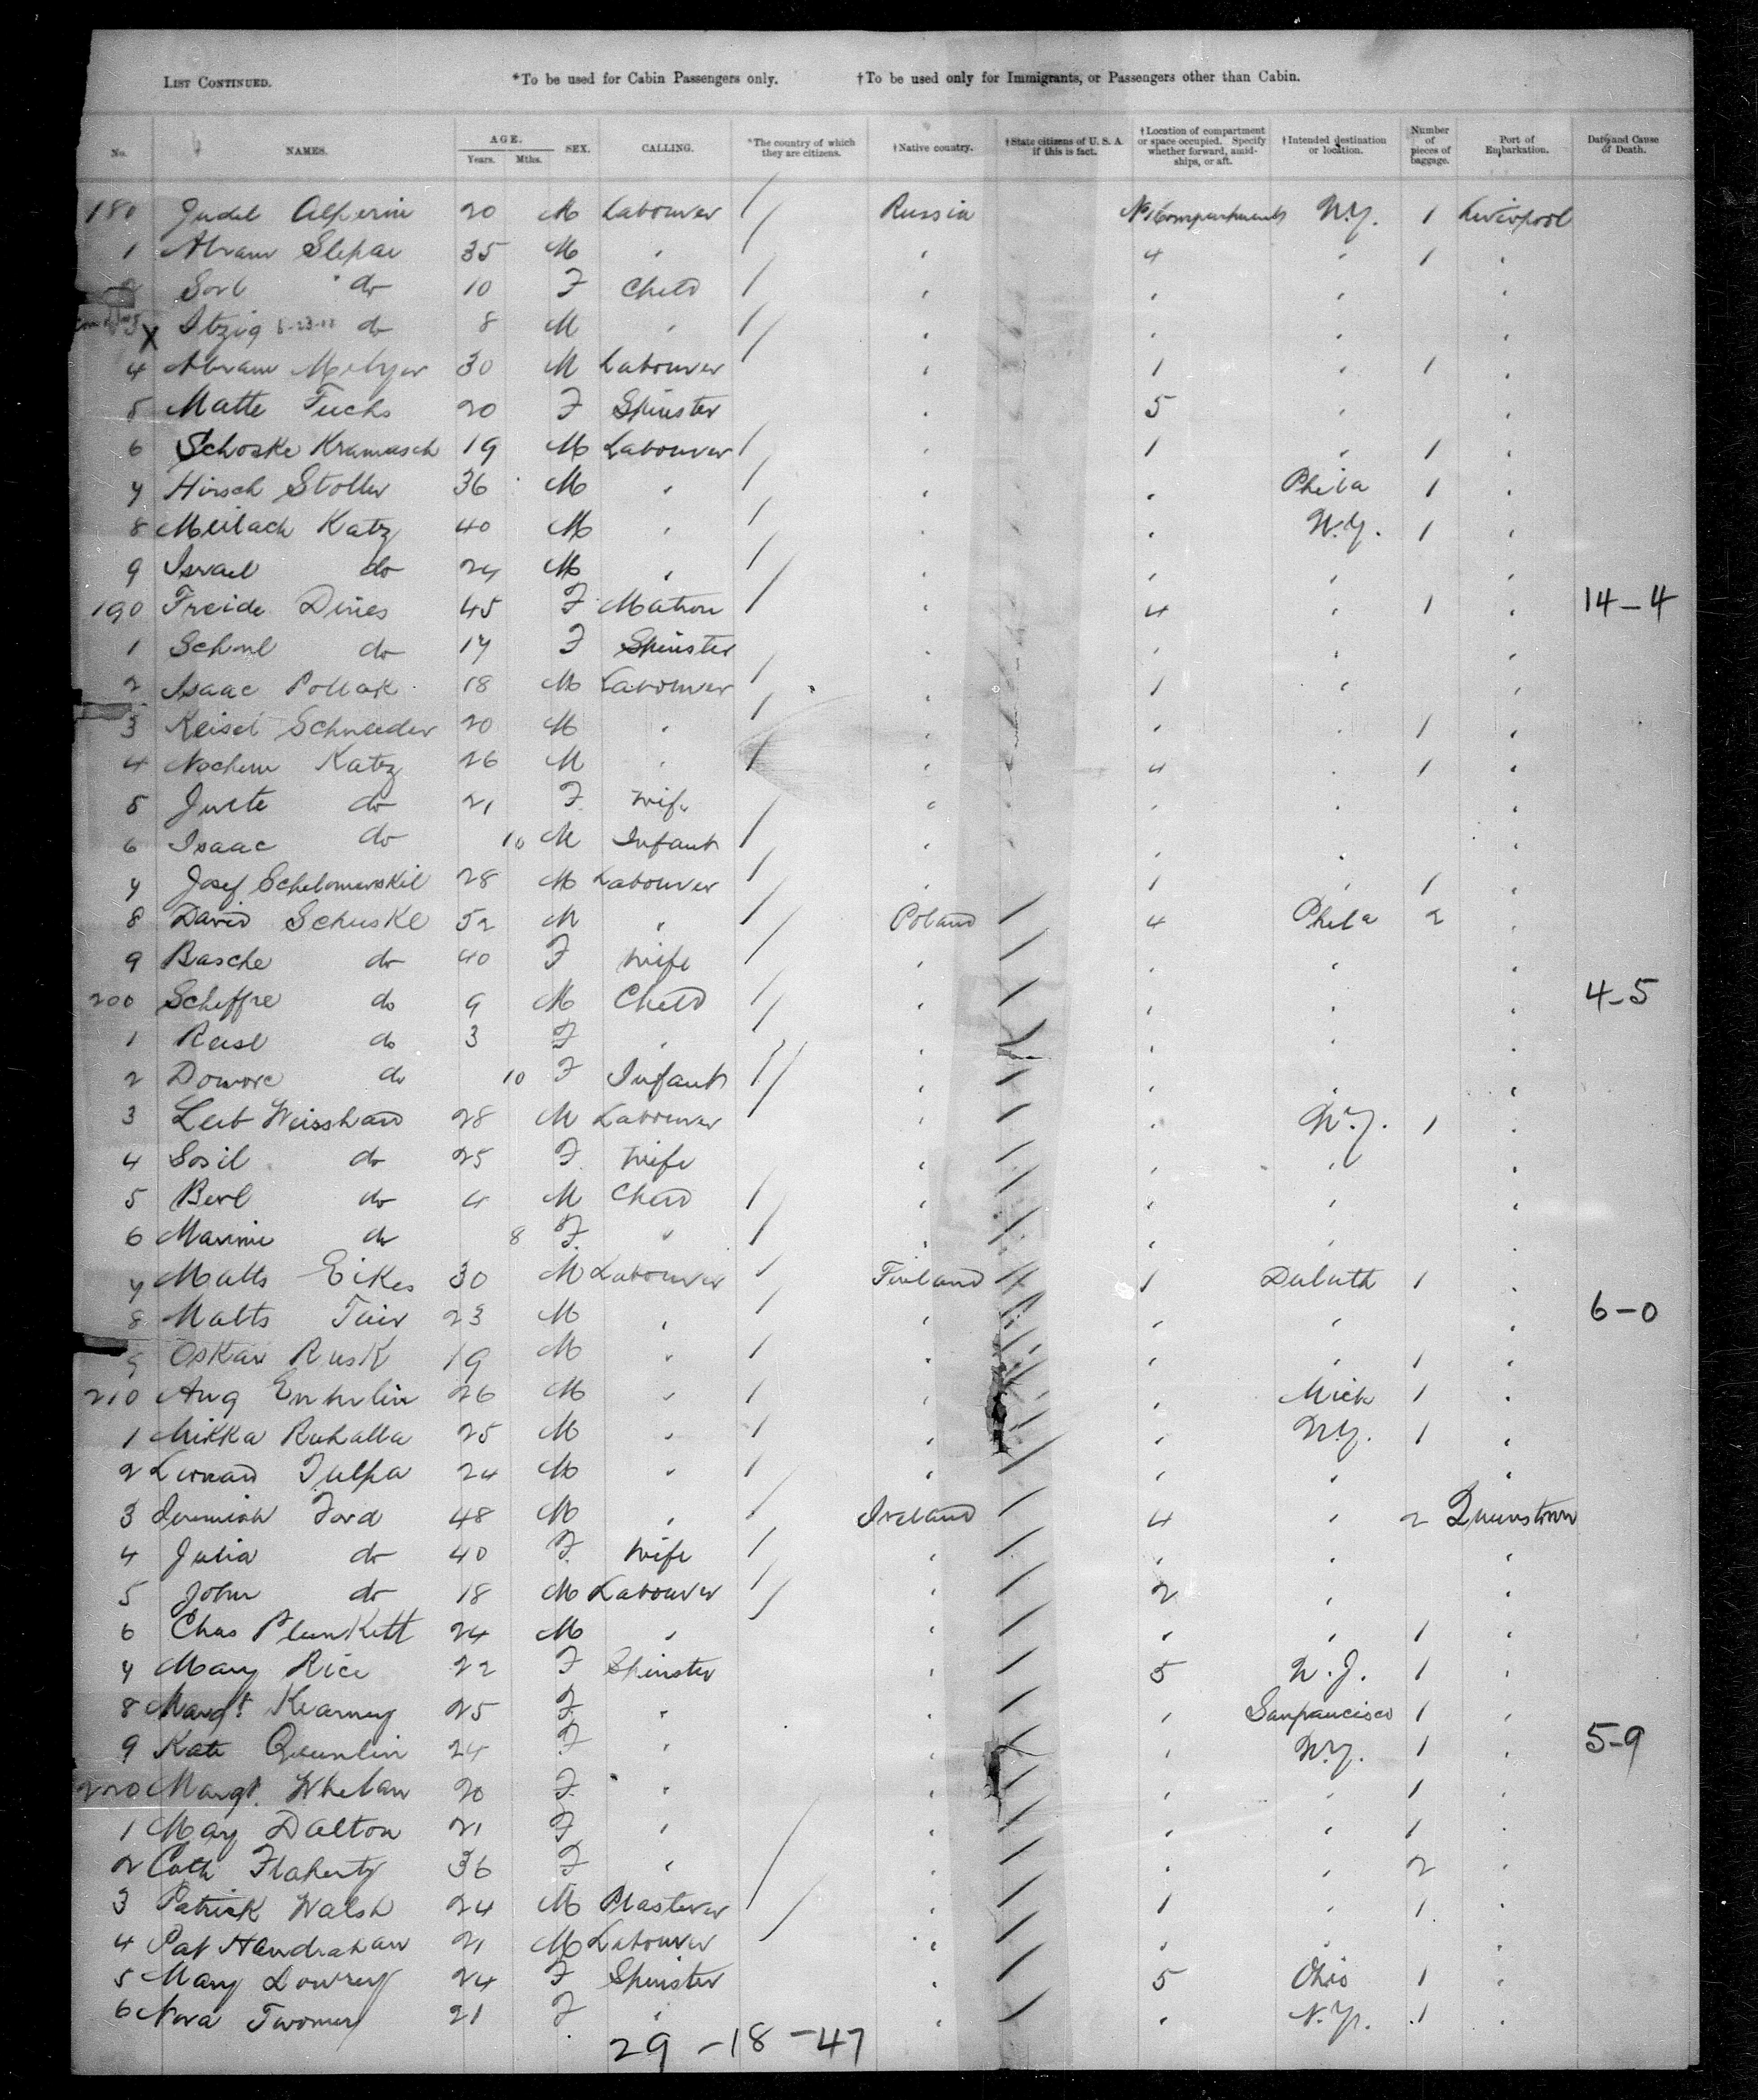 LIST CONTINUED. *To be used for Cabin Passengers only. †To be used only for Immigrants, or Passengers other than Cabin.
No. NAMES. AGE. Years. Mths. SEX. CALLING. *The country of which they are citizens. †Native country. †State citizens of U. S. A. if this is fact. †Location of compartment or space occupied. Specify whether forward, amidships, or aft. †Intended destination or location. Number of pieces of baggage. Port of Embarkation. Date and Cause of Death.
180 Judel Alperin 20 M Labourer Russia No 1 Compartment N.Y. 1 Liverpool
1 Abram Slepac 35 M " " 4 " 1 "
Sorl do 10 F Child " " " "
3 X Itzig do 8 M " " " " "
4 Abram 30 M Labourer " 1 " 1 "
5 Matte Fuchs 20 F Spinster " 5 " "
6 Schoske Kramasch 19 M Labourer " 1 " 1 "
7 Hirsch Stoller 36 M " " " Phila 1 "
8 Meilach Katz 40 M " " " N.Y. 1 "
9 Israel do 24 M " " " " "
190 Freide Dines 45 F Matron " 4 " 1 " 14-4
1 do 17 F Spinster " " " "
2 Isaac Pollak 18 M Labourer " 1 " "
3 Keisel Schneeder 20 M " " " " 1 "
4 Nochem Katz 26 M " " 4 " 1 "
5 Jutte do 21 F Wife " " " "
6 Isaac do 10 M Infant " " " "
7 Josef 28 M Labourer " 1 " 1 "
8 David Schuskl 52 M " Poland 4 Phila 2 "
9 Basche do 40 F Wife " " " "
200 Scheffre do 9 M Child " " " " 4-5
1 Reisl do 3 F " " " " "
2 Doware do 10 F Infant " " " "
3 Leib Weisshand 28 M Labourer " " N.Y. 1 "
4 Sosil do 25 F Wife " " " "
5 Berl do 4 M Child " " " "
6 Marime do 8 F " " " " "
7 Matts Eikes 30 M Labourer Finland 1 Duluth 1 "
8 Matts Tair 23 M " " " " " 6-0
9 Oskar Rusk 19 M " " " " 1 "
210 Aug 26 M " " " Mich 1 "
1 Mikka Ruhalla 25 M " " " N.Y. 1 "
2 Tulpa 24 M " " " " "
3 Jeremiah Ford 48 M " Ireland 4 " 2 Queenstown
4 Julia do 40 F Wife " " " "
5 John do 18 M Labourer " 2 " "
6 Chas Plunkett 24 M " " " " 1 "
7 Mary Rice 22 F Spinster " 5 N.J. 1 "
8 Margt Kearney 25 F " " " Sanfrancisco 1 "
9 Kate Quinlin 24 F " " " N.Y. 1 " 5-9
220 Margt. Whelan 20 F " " " " 1 "
1 May Dalton 21 F " " " " 1 "
2 Cath Flaherty 36 F " " " " 2 "
3 Patrick Walsh 24 M Plasterer " 1 " 1 "
4 Pat Handrahan 21 M Labourer " " " "
5 Mary Lowrey 24 F Spinster " 5 Ohio 1 "
6 Nora Twomey 21 F " " " N.Y. 1 "
29-18-47